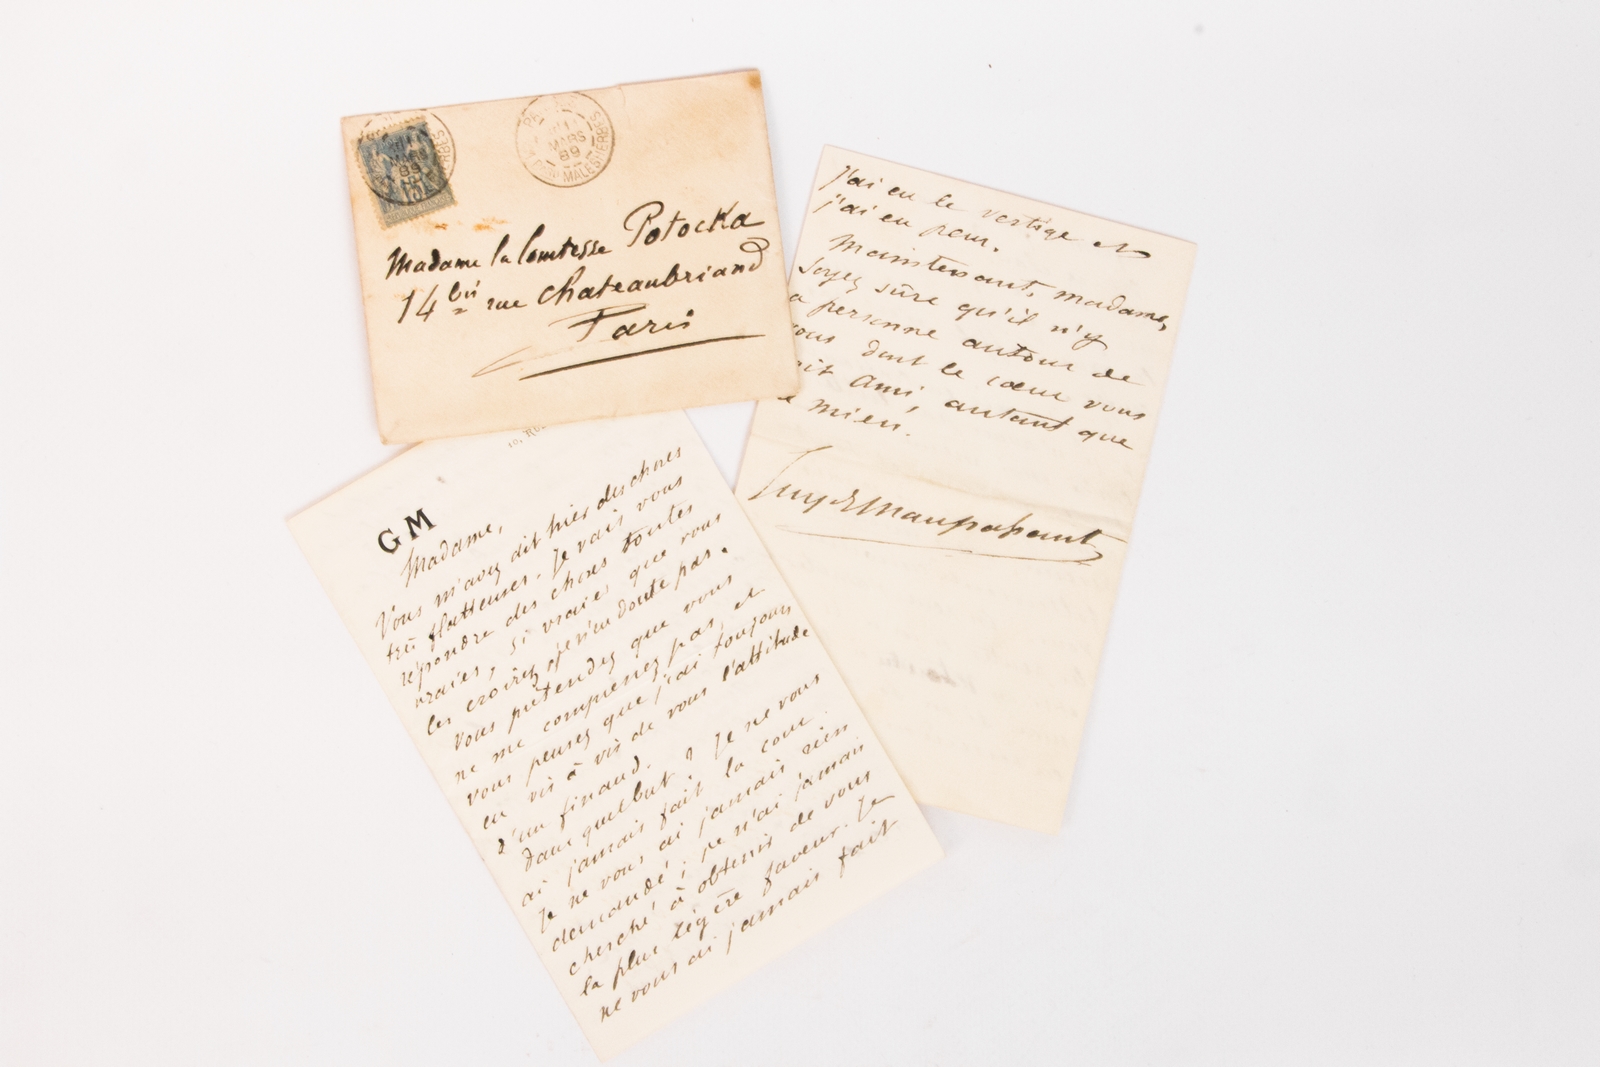 MARS
89
MALESHERBES
MARS
89
15
Madame la Comtesse Potocka
14 bis rue Chateaubriand
Paris
10, R
GM
Madame,
Vous m'avez dit hier des choses
très flatteuses. Je vais vous
répondre des choses toutes
vraies, si vraies que vous
les croirez, je n'en doute pas.
Vous prétendez que vous
ne me comprenez pas, et
vous pensez que j'ai toujours
eu vis à vis de vous l'attitude
d'un finaud.
Dans quel but ? Je ne vous
ai jamais fait la cour.
Je ne vous ai jamais rien
demandé ; je n'ai jamais
cherché à obtenir de vous
la plus légère faveur. Je
ne vous ai jamais fait
J'ai eu le vertige et
j'ai eu peur.
Maintenant, madame,
soyez sûre qu'il n'y
a personne autour de
vous dont le cœur vous
oit ami, autant que
e mien.
Guy de Maupassant